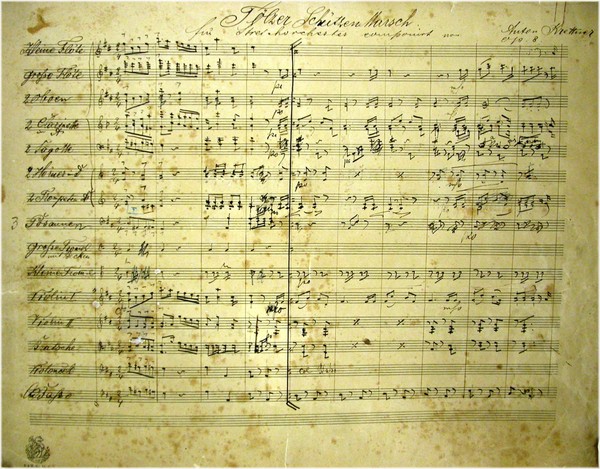 Tölzer Schützen Marsch
für Streichorchester componirt von
Anton Krettner
Op. 8
Kleine Flöte
große Flöte
2 Oboen
2 Clarinette
2 Fagotte
2 Hörner
2 Trompeten
3 Posaunen
große Trommel
Kleine Trommel
Violine I
Violine II
Bratsche
Violoncel
C. Bass